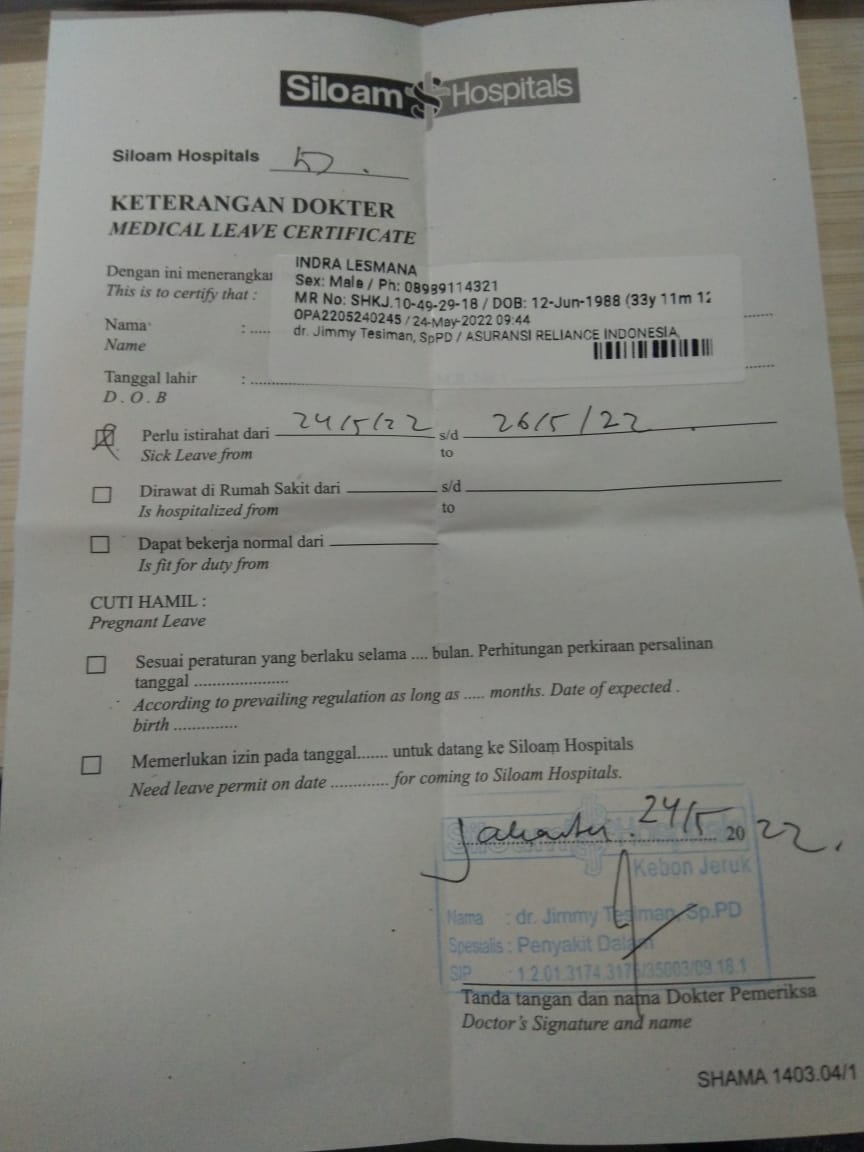 Siloam Hospitals
Siloam Hospitals
KETERANGAN DOKTER
MEDICAL LEAVE CERTIFICATE
Dengan ini menerangkan
This is to certify that :
INDRA LESMANA
Sex: Male / Ph: 08989114321
MR No: SHKJ.10-49-29-18 / DOB: 12-Jun-1988 (33y 11m 12
OPA2205240245 / 24-May-2022 09:44
dr. Jimmy Tesiman, SpPD / ASURANSI RELIANCE INDONESIA
Nama : .....
Name
Tanggal lahir : .....
D . O . B
Perlu istirahat dari 24/5/22 s/d 26/5/22
Sick Leave from to
Dirawat di Rumah Sakit dari s/d
Is hospitalized from to
Dapat bekerja normal dari
Is fit for duty from
CUTI HAMIL :
Pregnant Leave
Sesuai peraturan yang berlaku selama .... bulan. Perhitungan perkiraan persalinan
tanggal .....................
According to prevailing regulation as long as ..... months. Date of expected .
birth ..............
Memerlukan izin pada tanggal....... untuk datang ke Siloam Hospitals
Need leave permit on date ............. for coming to Siloam Hospitals.
Jakarta. 24/5 2022.
Siloam Hospitals
Kebon Jeruk
Nama : dr. Jimmy Tesiman, Sp.PD
Spesialis : Penyakit Dalam
SIP : 1.2.01.3174.3175/35003/09.18.1
Tanda tangan dan nama Dokter Pemeriksa
Doctor's Signature and name
SHAMA 1403.04/1